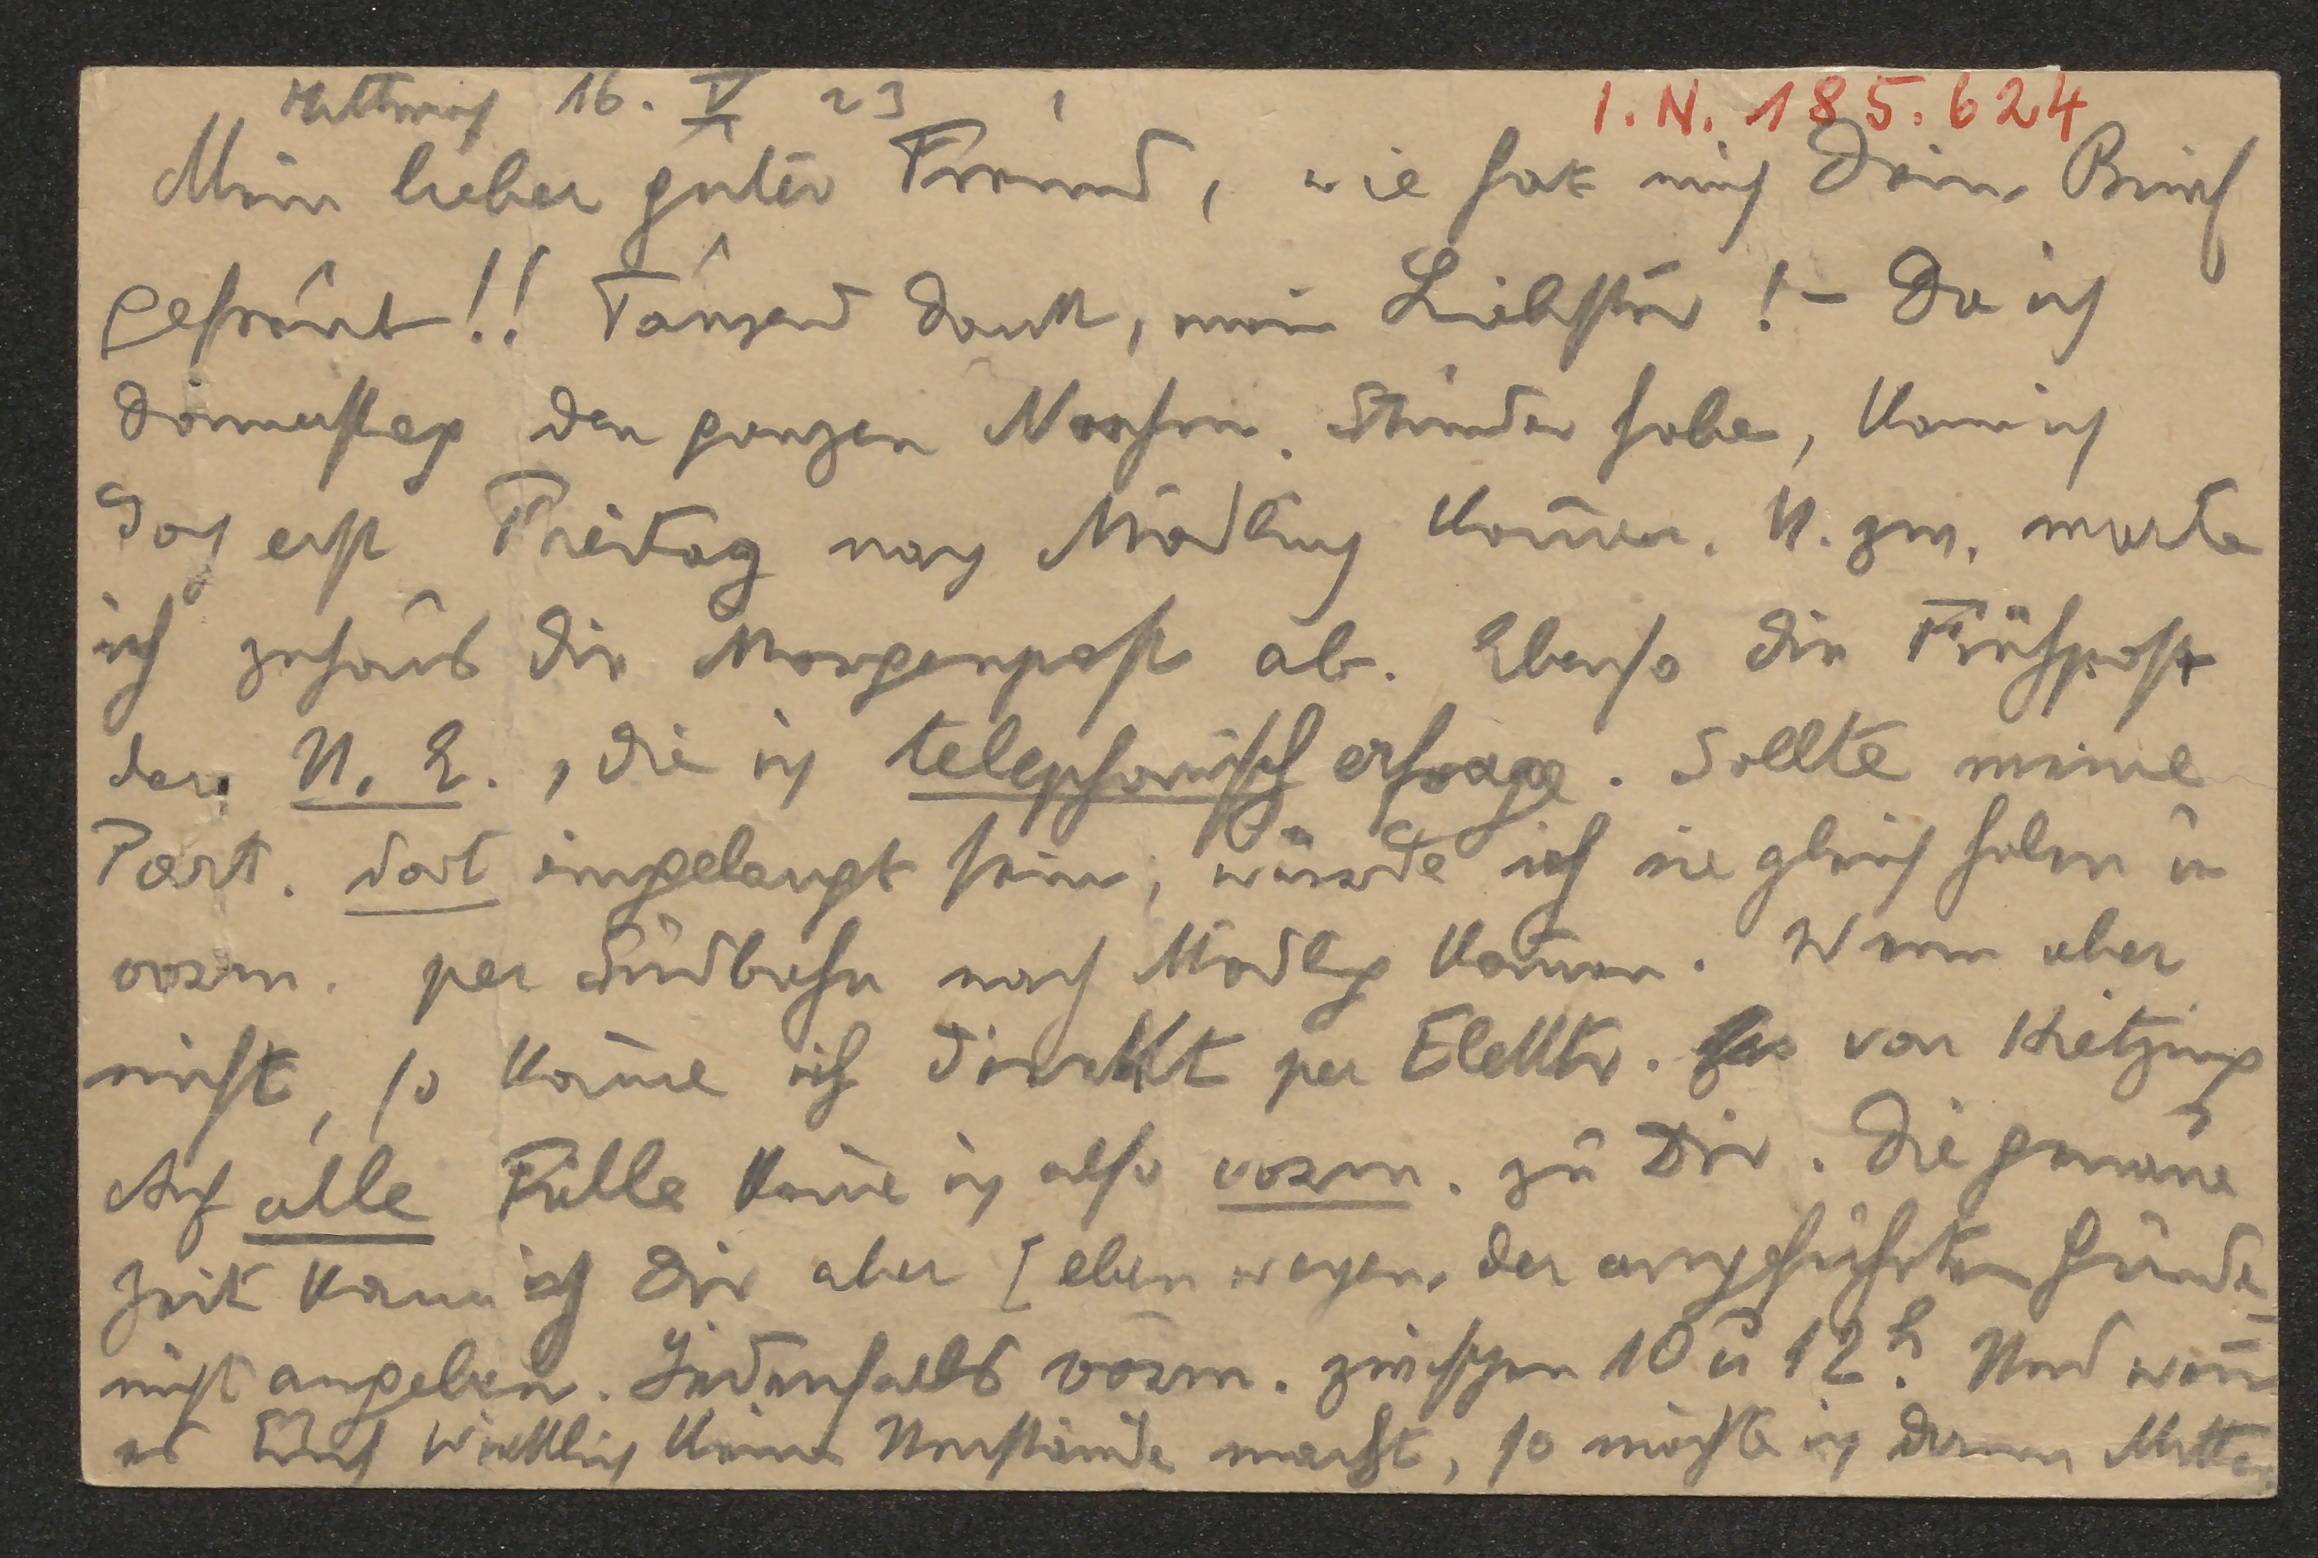 Mittwoch 16. V 23
I.N. 185.624
Mein lieber guter Freund, wie hat mich Dein Brief
gefreut!! Tausend Dank, mein Liebster! – Da ich
Donnerstag den ganzen Nachm. Stunden habe, kann ich
doch erst Freitag nach Mödling kommen. U. zw. warte
ich zuhaus die Morgenpost ab. Ebenso die Frühpost
der U. E., die ich telephonisch erfrage. Sollte meine
Part. dort eingelangt sein, würde ich sie gleich holen u
vorm. per Südbahn nach Mödlg kommen. Wenn aber
nicht, so komme ich direkt per Elektr. von Hietzing
Auf alle Fälle komme ich also vorm. zu Dir. Die genaue
Zeit kann ich Dir aber [eben wegen der angeführten Gründe
nicht angeben. Jedenfalls vorm. zwischen 10 u 12h. Und wenn
es Euch wirklich keine Umstände macht, so möchte ich dann